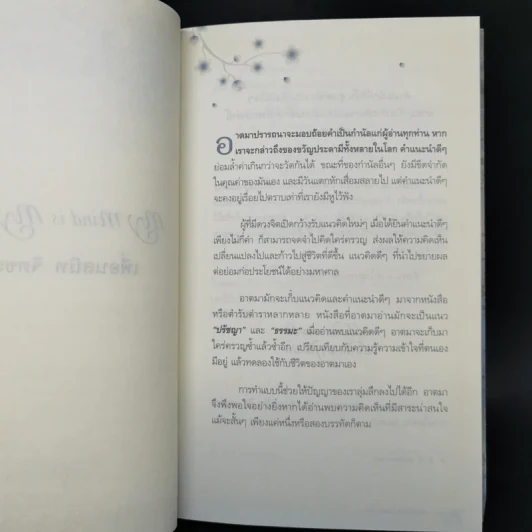 My Mind is My
เพื่อนสนิท คือ
อาตมาปรารถนาจะมอบถ้อยคำเป็นกำนัลแก่ผู้อ่านทุกท่าน หาก
เราจะกล่าวถึงของขวัญประดามีทั้งหลายในโลก คำแนะนำดีๆ
ย่อมล้ำค่าเกินกว่าจะวัดกันได้ ขณะที่ของกำนัลอื่นๆ ยังมีขีดจำกัด
ในคุณค่าของมันเอง และมีวันแตกหักเสื่อมสลายไป แต่คำแนะนำดีๆ
จะคงอยู่เรื่อยไปตราบเท่าที่เรายังมีหูไว้ฟัง
ผู้ที่มีดวงจิตเปิดกว้างรับแนวคิดใหม่ๆ เมื่อได้ยินคำแนะนำดีๆ
เพียงไม่กี่คำ ก็สามารถจดจำไปคิดใคร่ครวญ ส่งผลให้ความคิดเห็น
เปลี่ยนแปลงไปและก้าวไปสู่ชีวิตที่ดีขึ้น แนวคิดดีๆ ที่นำไปขยายผล
ต่อย่อมก่อประโยชน์ได้อย่างมหาศาล
อาตมามักจะเก็บแนวคิดและคำแนะนำดีๆ มาจากหนังสือ
หรือตำรับตำราหลากหลาย หนังสือที่อาตมาอ่านมักจะเป็นแนว
"ปรัชญา" และ "ธรรมะ" เมื่ออ่านพบแนวคิดดีๆ อาตมาจะเก็บมา
ใคร่ครวญซ้ำแล้วซ้ำอีก เปรียบเทียบกับความรู้ความเข้าใจที่ตนเอง
มีอยู่ แล้วทดลองใช้กับชีวิตของอาตมาเอง
การทำแบบนี้ช่วยให้ปัญญาของเราลุ่มลึกลงไปได้อีก อาตมา
จึงพึงพอใจอย่างยิ่งหากได้อ่านพบความคิดเห็นที่มีสาระน่าสนใจ
แม้จะสั้นๆ เพียงแค่หนึ่งหรือสองบรรทัดก็ตาม